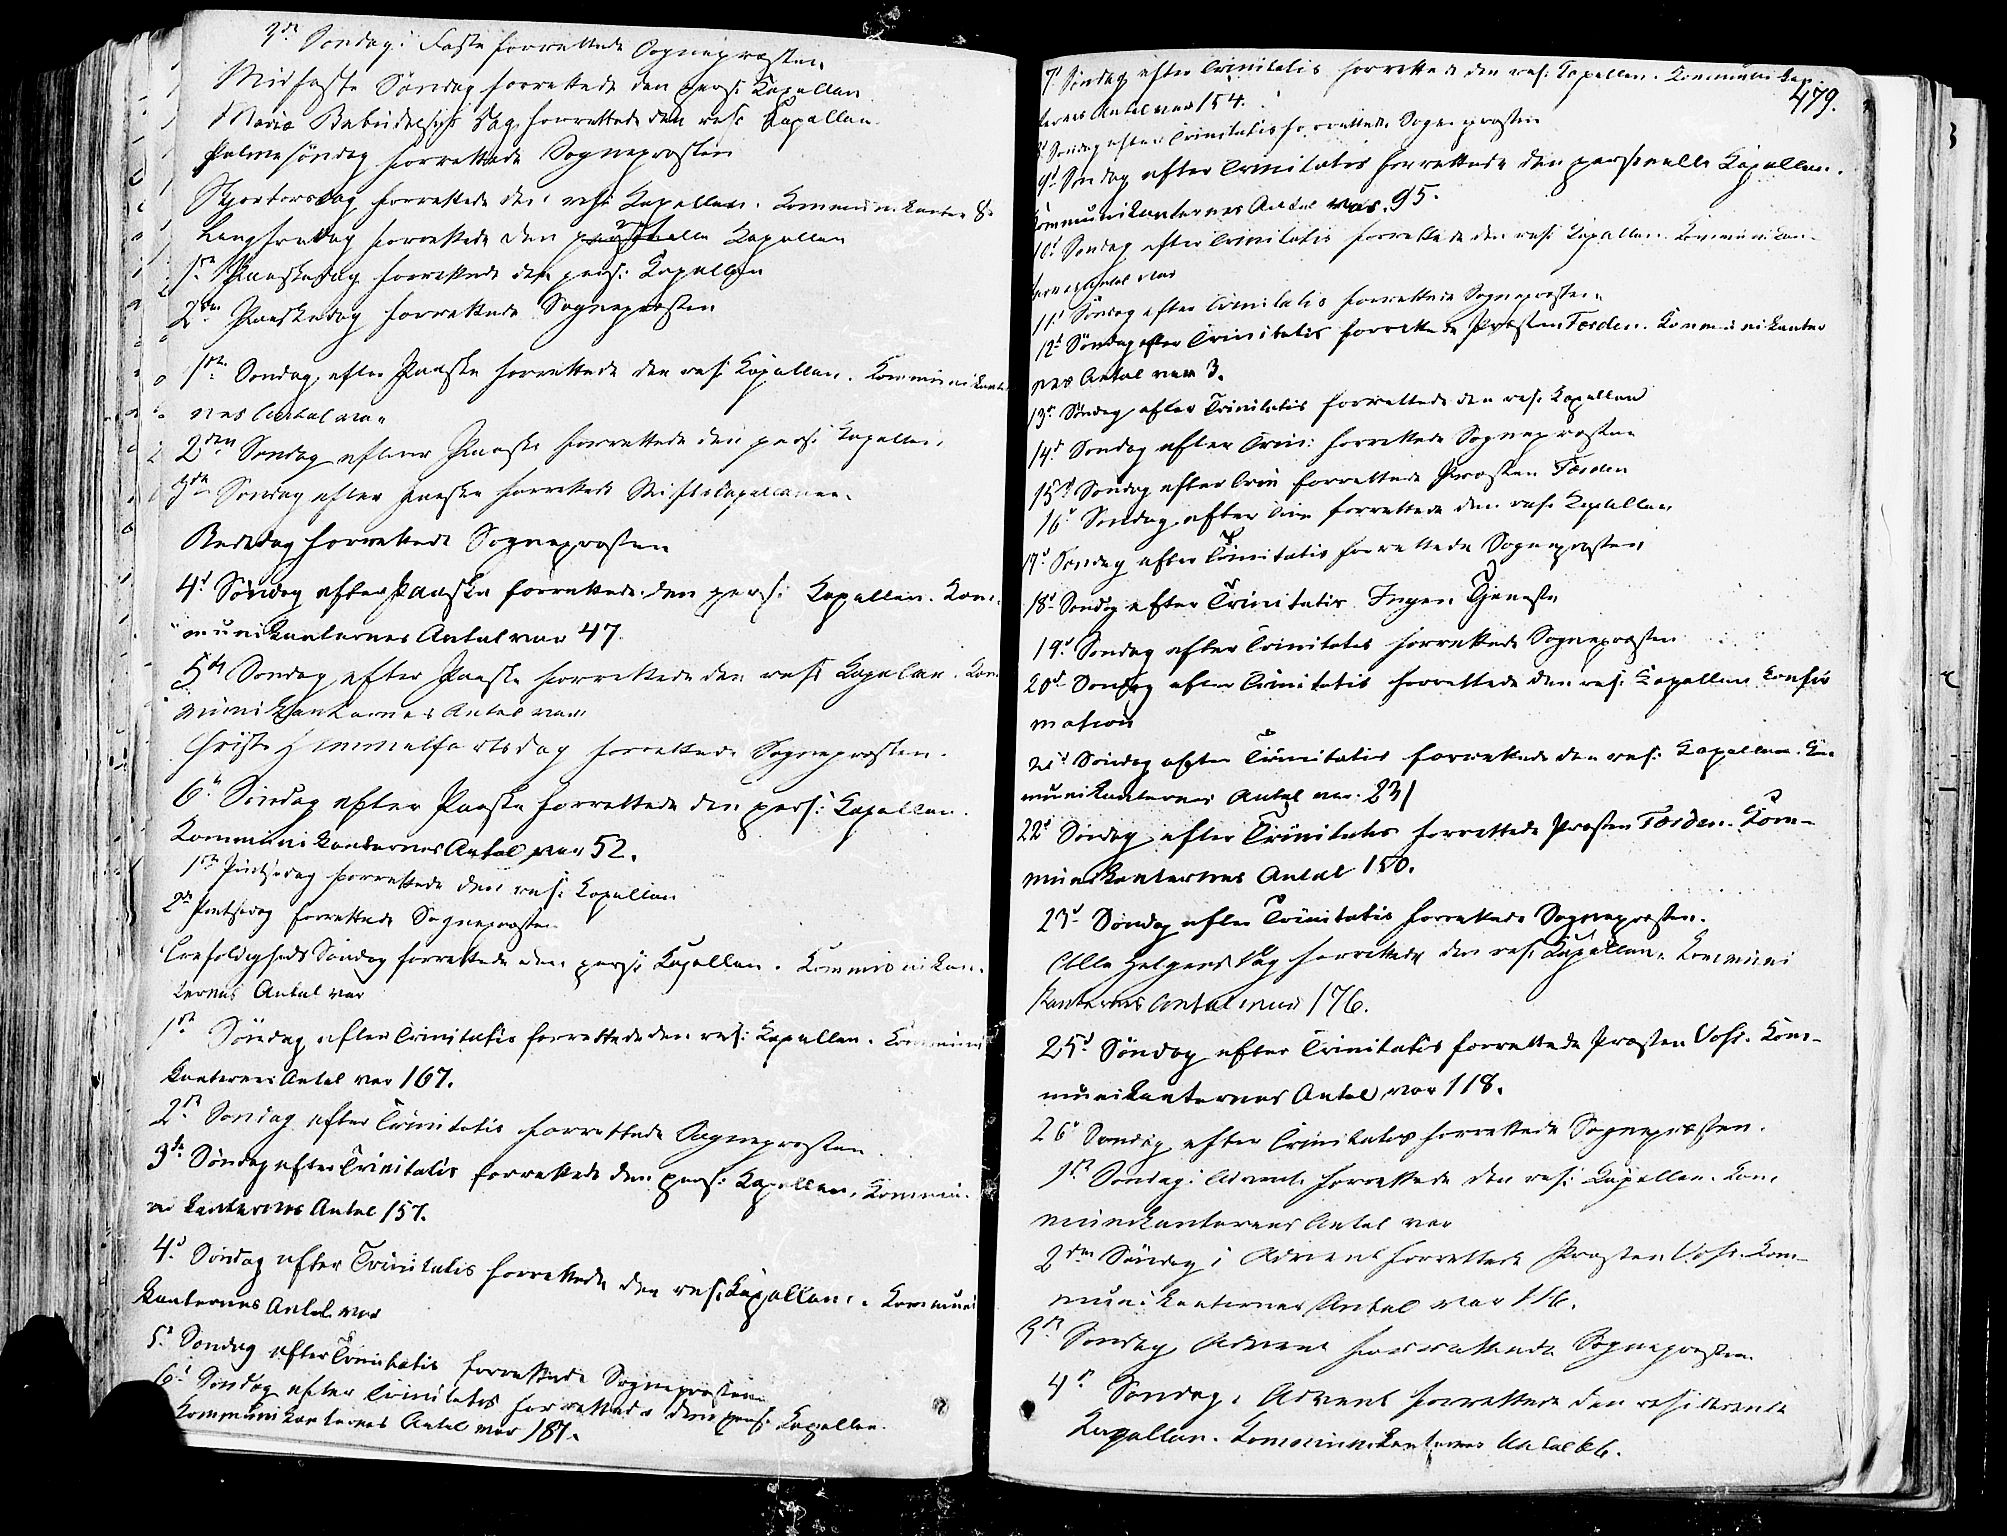 3die Søndag i Faste forrettede Sognepræsten
Midfaste Søndag forrettede den pers: Kapellan
Mariæ Bebudelses Dag forrettede den res: Kapellan
Palmesøndag forrettede Sognepræsten
Skjertorsdag forrettede den res: Kapellan. Kommunikanter 8
Langfredag forrettede den Kapellan
1ste Paaskedag forrettede den pers: Kapellan
2den Paaskedag forrettede Sognepræsten
1ste Søndag efter Paaske forrettede den res: Kapellan. Kommunikanter
nes Antal var
2den Søndag efter Paaske forrettede den pers: Kapellan
3die Søndag efter Paaske forrettede Stiftskapellanen.
Bededag forrettede Sognepræsten
4d Søndag efter Paaske forrettede den pers: Kapellan. Kom-
munikanternes Antal var 47.
5te Søndag efter Paaske forrettede den res: Kapelan. Kom
munikanternes Antal var
Christi Himmelfartsdag forrettede Sognepræsten.
6te Søndag efter Paaske forrettede den pers: Kapellan.
Kommunikanternes Antal var 52.
1ste Pintsedag forrettede den res: Kapellan
2d Pintsedag forrettede Sognepræsten
Trefoldigheds Søndag forrettede den pers: Kapellan. Kommunikan-
ternes Antal var
1ste Søndag efter Trinitatis forrettede den res: Kapellan. Kommuni
kanternes Antal var 167.
2d Søndag efter Trinitatis forrettede Sognepræsten.
3die Søndag efter Trinitatis forrettede den pers: Kapellan. Kommu-
nikanternes Antal 157.
4d Søndag efter Trinitatis forrettede den res: Kapellan. Kommuni
kanternes Antal var
5d Søndag efter Trinitatis forrettede Sognepræsten
6d Søndag efter Trinitatis forrettede den pers: Kapellan.
Kommunikanternes Antal var 187.
479.
7d Søndag efter Trinitatis forrettede den res: Capellan. Kommunikan
ternes Antal var 154.
8d Søndag efter Trinitatis forrettede Sognepræsten
9d Søndag efter Trinitatis forrettede den personelle Kapellan.
Kommunikanternes Antal var 95.
10d Søndag efter Trinitatis forrettede den res: Kapellan. Kommunikan-
ternes Antal var
11d Søndag efter Trinitatis forrettede Sognepræsten.
12d Søndag efter Trinitatis forrettede Præsten Tørden. Kommunikanter
nes Antal var 3.
13d Søndag efter Trinitatis forrettede den res: Kapellan
14d Søndag efter Trin: forrettede Sognepræsten
15d Søndag efter Trin forrettede Præsten Tørden
16d Søndag efter Trin forrettede den res: Kapellan
17d Søndag efter Trinitatis forrettede Sognepræsten
18d Søndag efter Trinitatis Ingen Tjeneste
19d Søndag efter Trinitatis forrettede Sognepræsten
20d Søndag efter Trinitatis forrettede den res: Kapellan Konfir
mation
21d Søndag efter Trinitatis forrettede den res: Kapellan. Kom
munikanternes Antal var 231
22d Søndag efter Trinitatis forrettede Præsten Tørden. Kom-
munikanternes Antal 150.
23d Søndag efter Trinitatis forrettede Sognepræsten.
Alle Helgens Dag forrettede den res: Kapellan. Kommuni
kanternes Antal var 176.
25d Søndag efter Trinitatis forrettede Præsten Voss. Kom-
munikanternes Antal var 118.
26d Søndag efter Trinitatis forrettede Sognepræsten.
1ste Søndag i Advent forrettede den res: Kapellan. Kom-
munikanternes Antal var
2den Søndag i Advent forrettede Præsten Voss. Kom-
munikanternes Antal var 116.
3die Søndag Advent forrettede Sognepræsten.
4de Søndag i Advent forrettede den residerende
Kapellan. Kommunikanternes Antal 66.